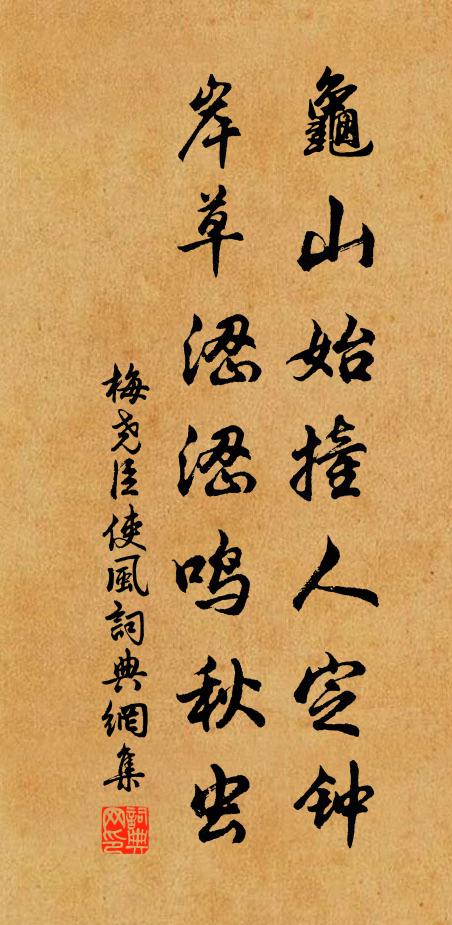 龜山始撞人定钟
岸草涩涩鸣秋虫
梅尧臣使風詞典網集
詞典网印